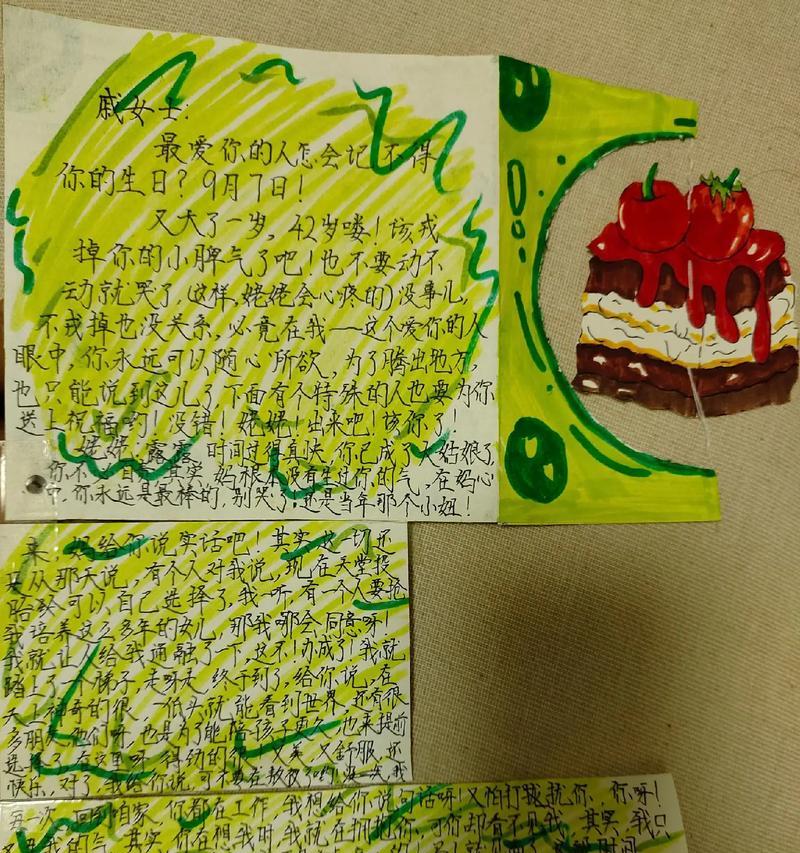 戚女士:
最爱你的人怎会记不得
你的生日?9月7日!
又大了一岁,42岁喽!该戒
掉你的小脾气了吧!也不要动不
动就哭了,(这样,姥姥会心疼的)没事儿,
不戒掉也没关系,必竟在我——这个爱你的人
眼中,你永远可以随心所欲,为了腾出地方,
也只能说到这儿了下面有个特殊的人也要为你
送上祝福哟!没错!姥姥!出来吧!该你了!
姥姥:露露,时间过得真快,你已成了大姑娘了,
你不 自 其实,妈根本没有生过你的气,在妈心
中,你永远是最棒的,别哭了,还是当年那个小妞!
来,妈给你说实话吧!其实,这一切还
要从那天说,有个人对我说,现在天堂投
胎 可以自己选择了,我一听,有一个人要抢
我培养这么多年的女儿,那我哪会同意呀!
我就让人给我通融了一下,这不!办成了!我就
踏上了一个梯子,走呀走,终于到了,给你说,在
天上神奇的很,一低头就能看到世界,还有很
多朋友,他们呀,也是为了能陪孩子更久,也来提前
选择了,在这里呀,得劲的很,又美又舒服,还
快乐,对了,我给你说,可不要在熬夜了哟!没一次,我
每一次,回到咱家,你都在工作,我想给你说句话呀!又怕打扰 你,你呀!
的气,其实,你在想我时,我就在拥抱你,可你却看不见我,其实,我只